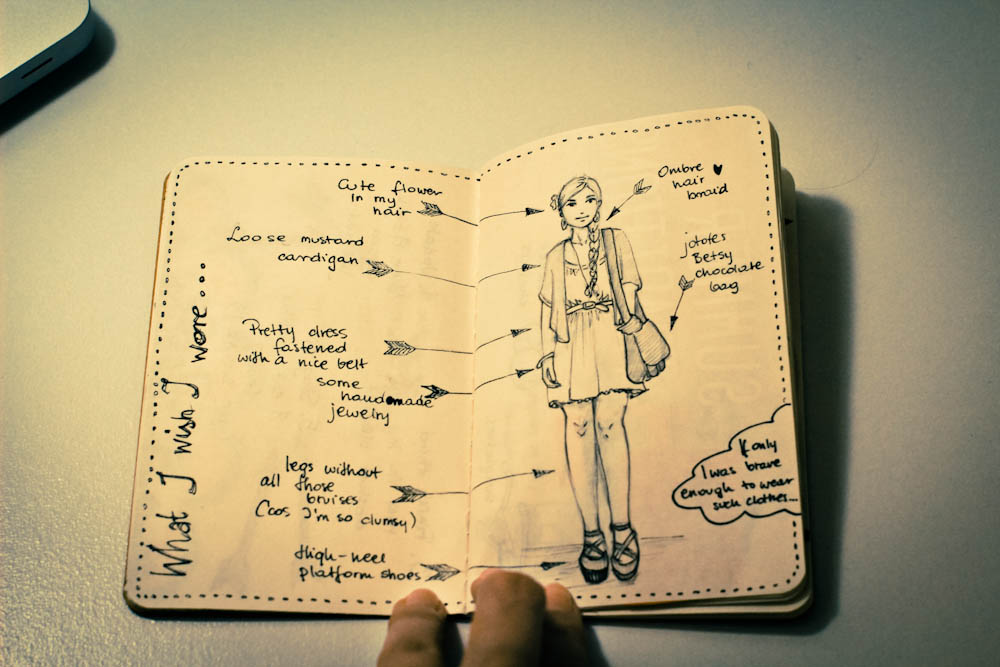 What I wish I wore...
Cute flower
in my
hair
Loose mustard
cardigan
Pretty dress
fastened
with a nice belt
some
handmade
jewelry
legs without
all those
bruises
(Cos I'm so clumsy)
High-heel
platform shoes
Ombre
hair
braid
jototes
Betsy
chocolate
bag
If only
I was brave
enough to wear
such clothes...